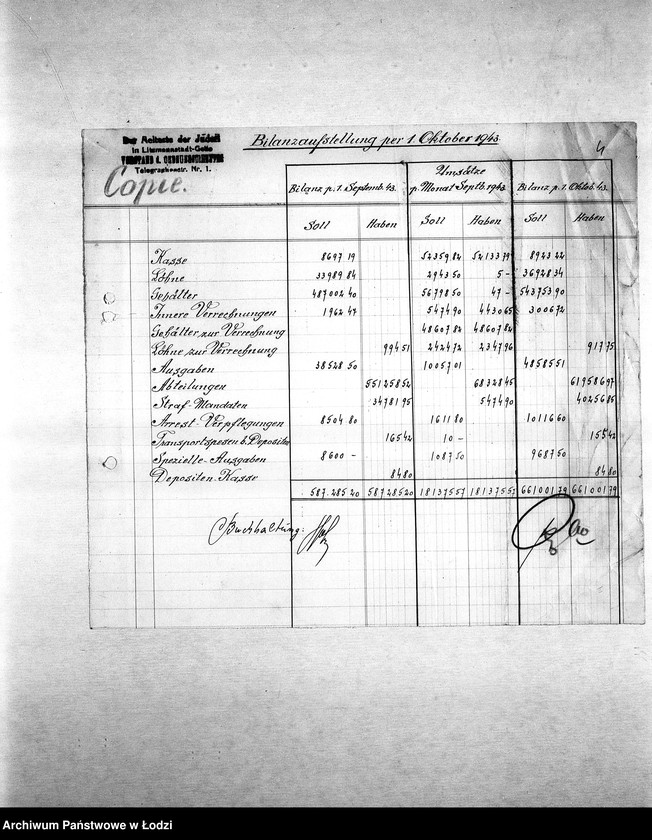 Der Aelteste der Juden
in Litzmannstadt-Getto
VORSTAND d. ORDNUNGSDIENSTES
Telegraphenstr. Nr. 1.
Copie.
Bilanzaufstellung per 1. Oktober 1943.
4
Bilanz p. 1. Septemb. 43. Umsätze p. Monat Septb. 1943. Bilanz p. 1. Oktob. 43.
Soll Haben Soll Haben Soll Haben
Kasse 8697 19 52359 82 52133 79 8923 22
Löhne 33989 84 2943 50 5 - 36928 34
Gehälter 487002 40 56798 50 47 - 543753 90
Innere Verrechnungen 1962 47 5474 90 4430 65 3006 72
Gehälter zur Verrechnung 48607 82 48607 82
Löhne zur Verrechnung 994 51 2424 72 2347 96 917 75
Ausgaben 38528 50 10057 01 48585 51
Abteilungen 551258 52 68328 45 619586 97
Straf-Mandaten 34781 95 5474 90 40256 85
Arrest-Verpflegungen 8504 80 1611 80 10116 60
Transportspesen b. Depositen 165 42 10 - 155 42
Spezielle-Ausgaben 8600 - 1087 50 9687 50
Depositen-Kasse 84 80 84 80
587.285 20 587285 20 181375 57 181375 57 661001 79 661001 79
Buchhaltung:
Archiwum Państwowe w Łodzi